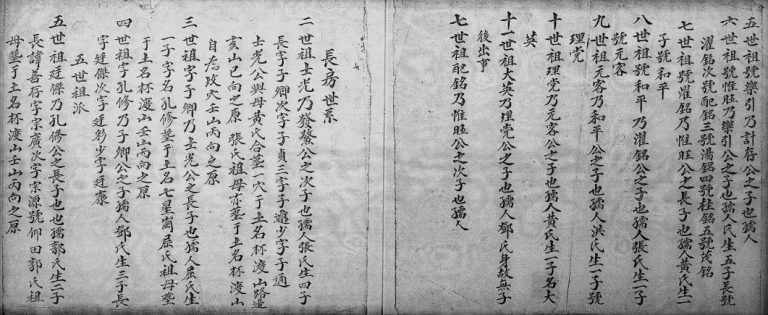 五世祖號樂引乃計存公之子也孺人
六世祖號惟旺乃樂引公之子也孺人氏生五子長號
濯銘次號配銘三號湯銘四號桂銘五號茂銘
七世祖號濯銘乃惟旺公之長子也孺人黃氏生一
子號和平
八世祖號和平乃濯銘公之子也孺人張氏生一子
號元客
九世祖元客乃和平公之子也孺人洪氏生一子號
理党
十世祖理党乃元客公之子也孺人黃氏生一子名大
英
十一世祖大英乃理党公之子也孺人鄧氏身故無子
後出亊
七世祖配銘乃惟旺公之次子也孺人
長房世系
二世祖士光乃發鰲公之次子也孺人張氏生四子
長字子卿次字子貞三字子遠少字子通
士光公與母黃氏合塟一穴于土名杯渡山路邊
亥山巳向之原 張氏祖母亦塟于土名杯渡山
自為攺穴壬山丙向之原
三世祖字子卿乃士光公之長子也孺人屈氏生
一子字名孔修塟于土名七星崗屈氏祖母塟
于土名杯渡山壬山丙向之原
四世祖字孔修乃子卿公之子孺人鄧氏生三子長
字廷傑次字廷彩少字廷康
五世祖派
五世祖廷傑乃孔修公之長子也也孺郭氏生二子
長諱善存字宗廣次字宗源號仰田郭氏祖
母塟于土名杯渡山壬山丙向之原